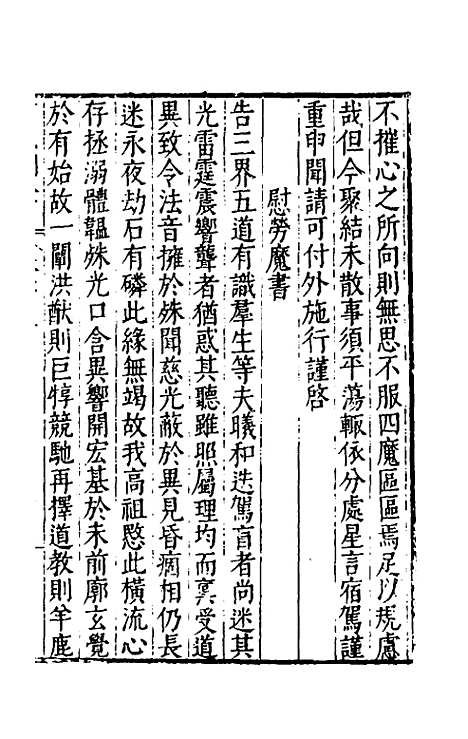 不摧心之所向則無思不服四魔區區焉足以規慮
哉但今聚結未散事須平蕩輒依分處星言宿駕謹
重申聞請可付外施行謹啓
慰勞魔書
告三界五道有識羣生等夫曦和迭駕盲者尚迷其
光雷霆震響聾者猶惑其聽雖照屬理均而稟受道
異致令法音擁於殊聞慈光蔽於異見昏痼相仍長
迷永夜劫石有磷此緣無竭故我高祖愍此橫流心
存拯溺體韞殊光口含異響開宏基於未前廓玄覺
於有始故一闡洪猷則巨犉競馳再擇道教則羊鹿